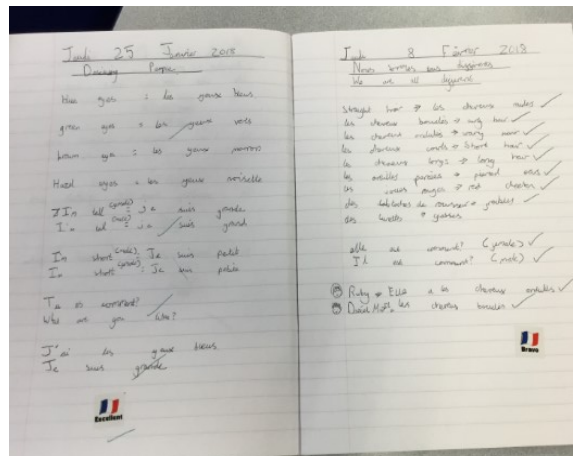 Jeudi 25 Janvier 2018
Describing People
Blue eyes = les yeux bleus
green eyes = les yeux verts
brown eyes = les yeux marrons
Hazel eyes = les yeux noisette
I'm tall (female) = je suis grande
I'm tall (male) = je suis grand
I'm short (male): Je suis petit
I'm short (female): Je suis petite
Tu es comment?
What are you like?
J'ai les yeux bleus
Je suis grande
Excellent
Jeudi 8 Février 2018
Nous sommes tous
We are all different
Straight hair → les cheveux raides
les cheveux bouclés → curly hair
les cheveux ondulés → wavy hair
les cheveux courts → Short hair
les cheveux longs → long hair
les oreilles percées → pierced ears
les joues rouges → red cheeks
des taches de rousseur → freckles
des lunettes → glasses
elle est comment? (female)
Il est comment? (male)
Ruby → Elle a les cheveux ondulés
David les cheveux bouclés
Bravo